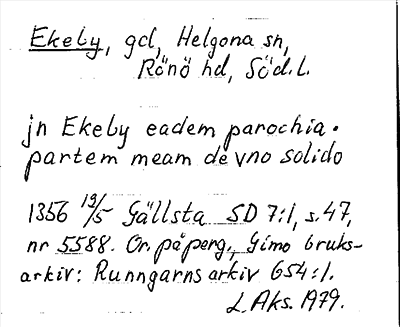 Ekeby, gd, Helgona sn,
Rönö hd, Söd.l.
jn Ekeby eadem parochia.
partem meam de vno solido
1356 19/5 Gällsta SD 7:1, s. 47,
nr 5588. Or. på perg., Gimo bruks-
arkiv: Runngarns arkiv 654:1.
L. Aks. 1979.